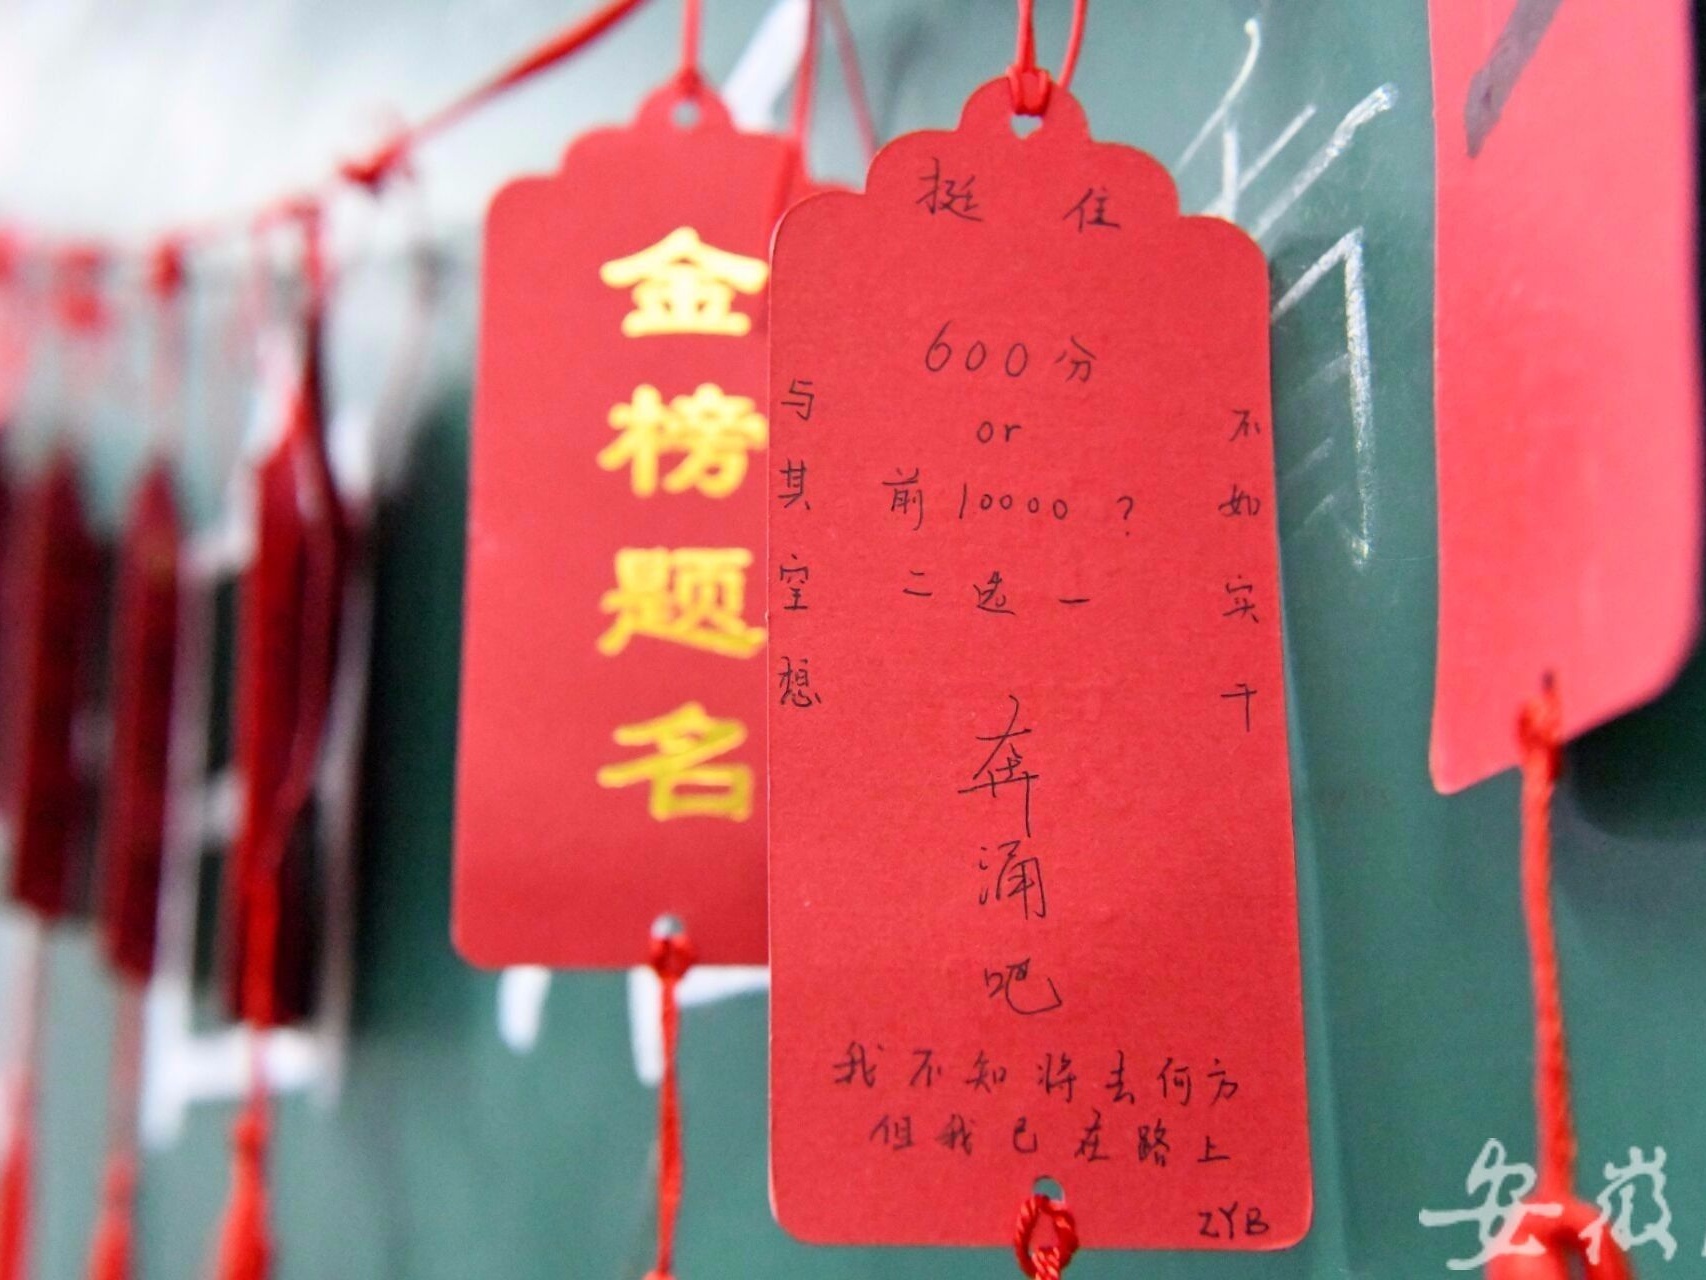 金榜题名
挺住
600分
or
前10000?
二选一
与其空想
不如实干
奔涌吧
我不知将去何方
但我已在路上
ZYB
安徽